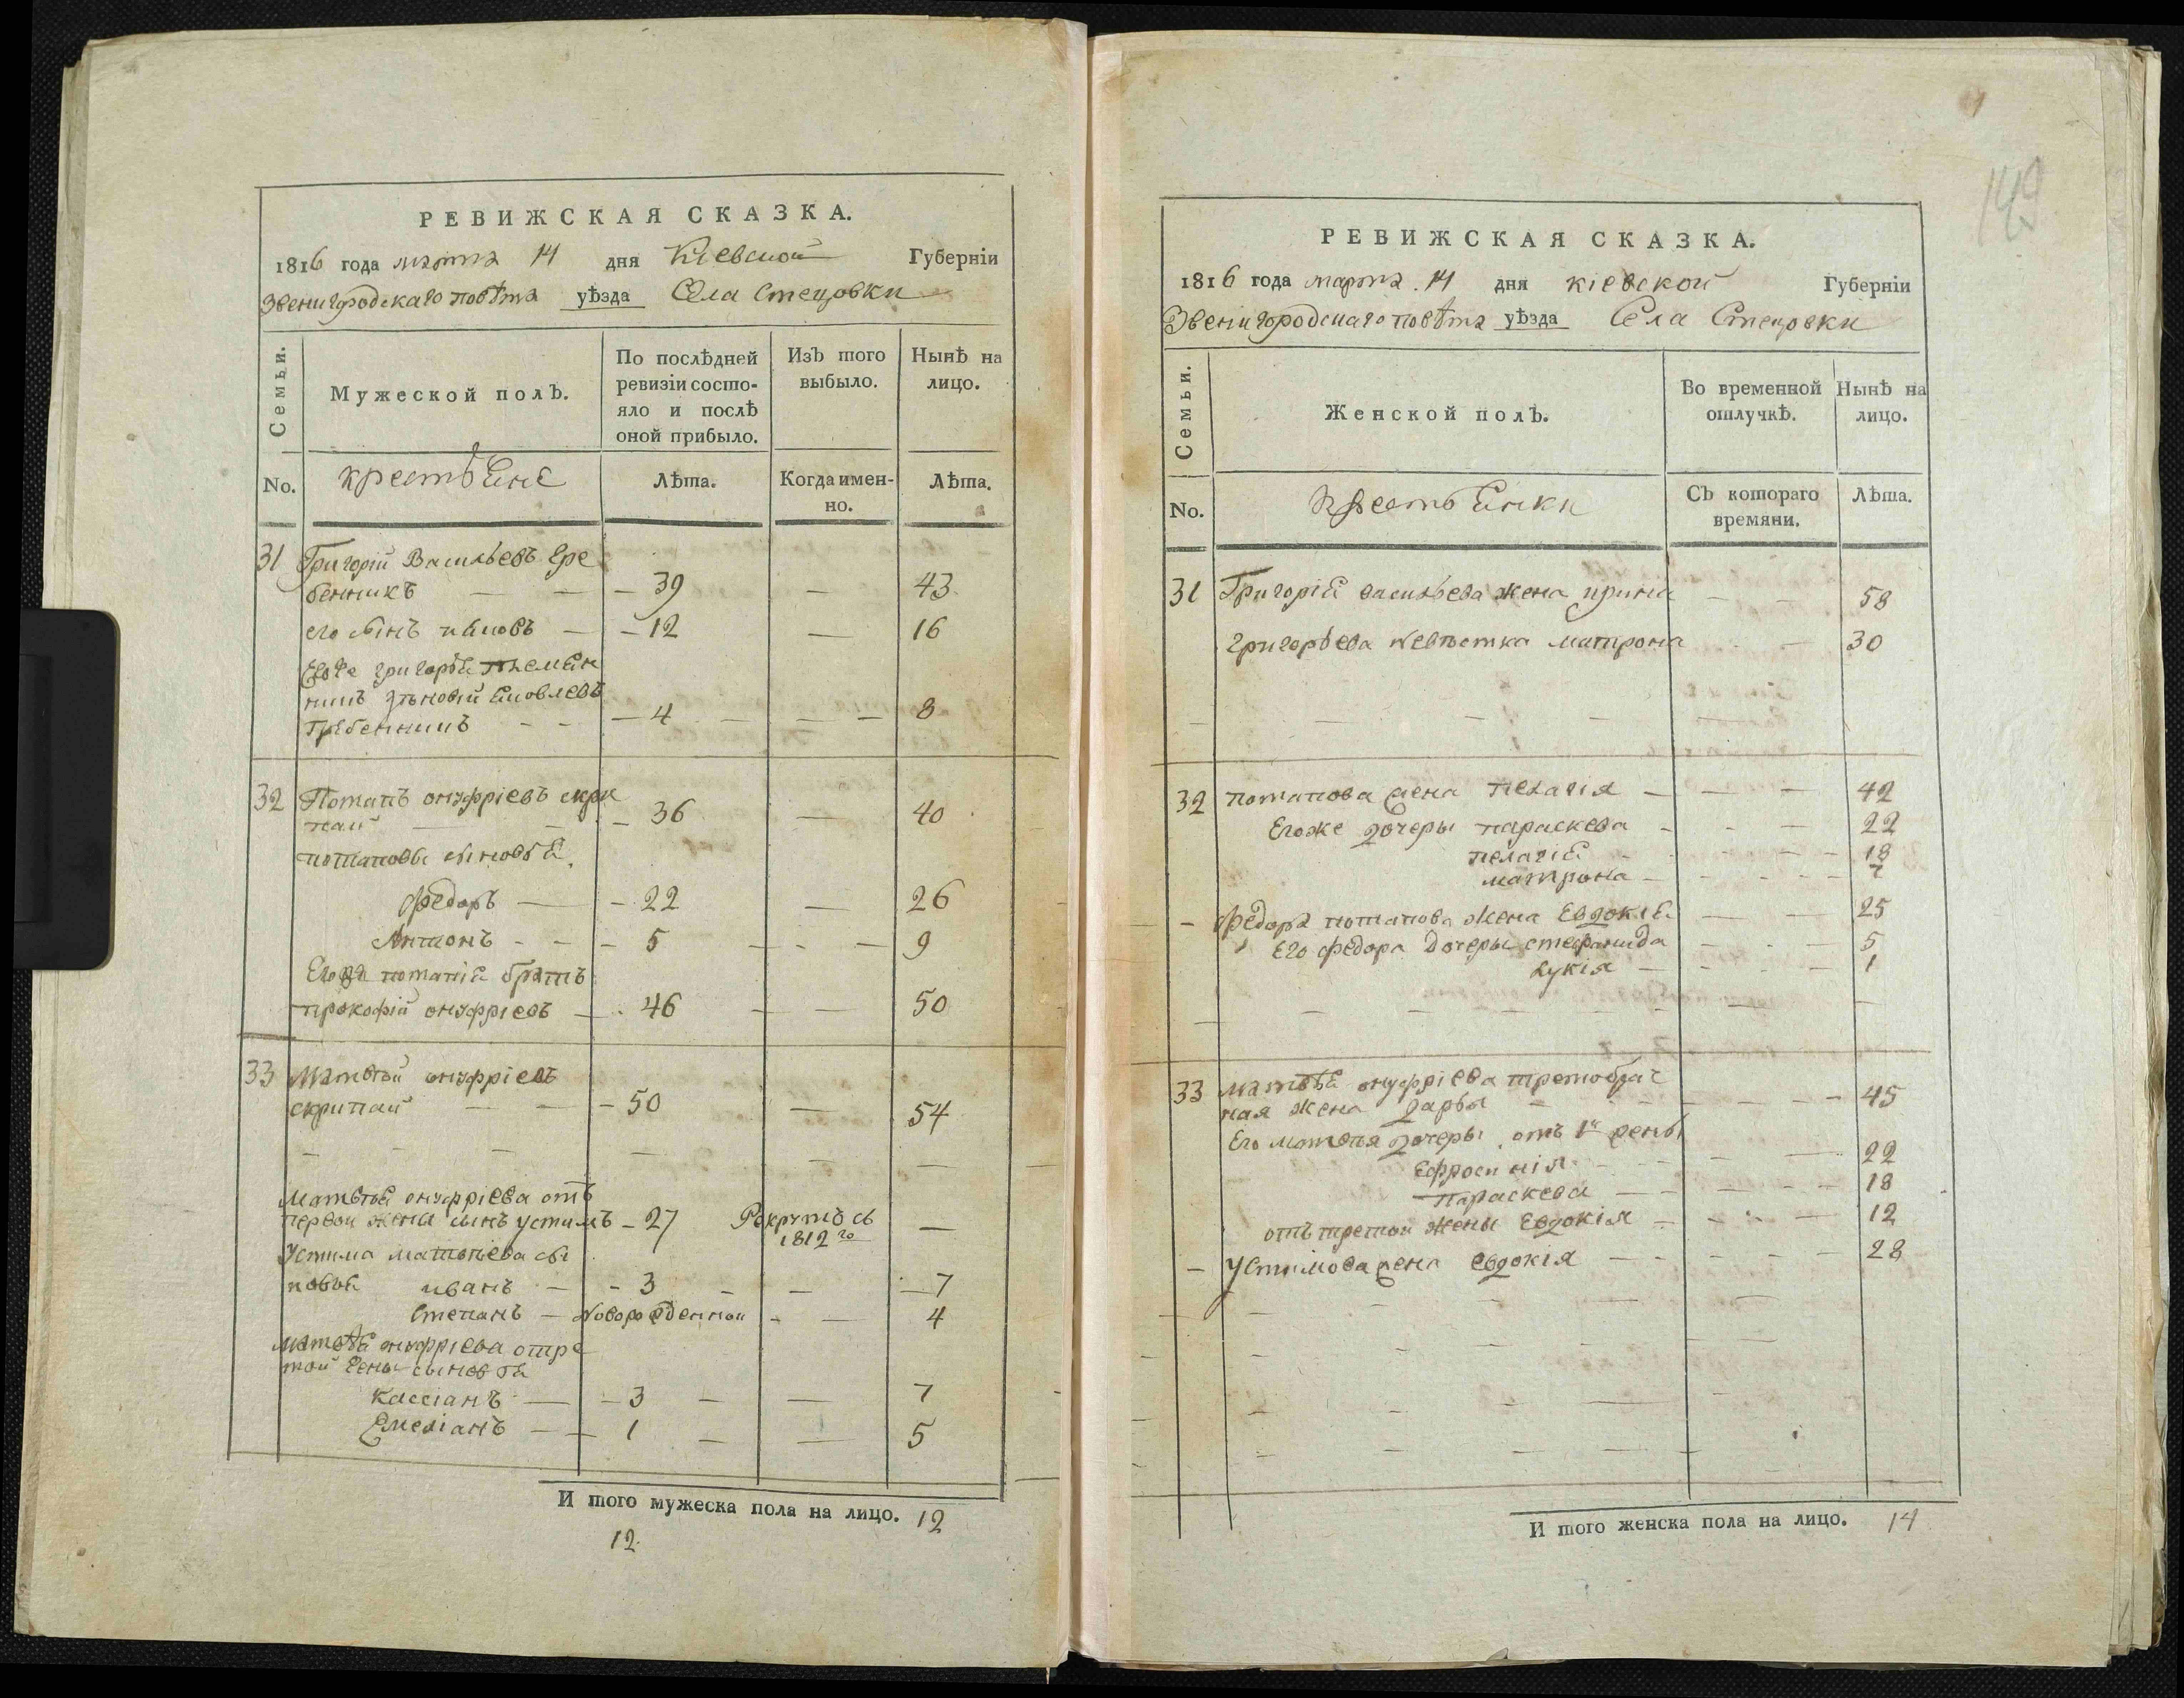 РЕВИЖСКАЯ СКАЗКА.
1816 года марта 14 дня Кіевской Губерніи
Звенигородскаго повѣта уѣзда Села Стецовки
Семьи.
Мужеской полъ.
По послѣдней ревизіи состо-
яло и послѣ
оной прибыло.
Изъ того выбыло.
Нынѣ на лицо.
No. крестьяне Лѣта. Когда имен-
но. Лѣта.
31 Григорій Васильевъ Гре
бенникъ — — — 39 — 43
его сынъ — — 12 — 16
Егоже григорья племян
никъ зѣновій яковлевъ
Гребенникъ - - — 4 — — — 8
32 Потапъ онуфріевъ скри
пай — — 36 — 40
потаповы сыновья
Федоръ — - 22 — 26
Антонъ - - - 5 — - — 9
Егоже потапія братъ
прокофій онуфріевъ — - 46 — — 50
33 Матвѣй онуфріевъ
скрипай — — - 50 — 54
Матвѣя онуфріева отъ
первой жены сынъ устимъ - 27 Рекрутъ съ —
1812го
Устима матвѣева сы
новья иванъ — - 3 - — 7
Степанъ — Новорожденной - — 4
Матвѣя онуфріева отре
той жены сыновья
Кассіанъ — - 3 — — 7
Емеліанъ — — 1 — — 5
И того мужеска пола на лицо. 12
12.
149
РЕВИЖСКАЯ СКАЗКА.
1816 года марта 14 дня кіевской Губерніи
Звенигородскаго повѣта уѣзда Села Стецовки
Семьи.
Женской полъ.
Во временной отлучкѣ.
Нынѣ на лицо.
No. крестьянки Съ котораго
времяни. Лѣта.
31 Григорія васильева жена ирина — — 58
григорьева невѣстка матрона — 30
32 потапова жена пелагія — — — 42
Егоже дочеры параскева - - — 22
пелагія - - — - 18
матрона — - - - - 7
- Федора потапова жена Евдокія — — 25
Его федора дочеры стефанида - - — 5
лукія — - - — 1
33 матвѣя онуфріева третобрач
ная жена дарья - - — - - - 45
Его матвѣя дочеры отъ 1й жены
Ефросинія - - - — 22
параскева — - - - - 18
отъ третой жены Евдокія - - - — 12
- Устимова жена евдокія — — - - - 28
И того женска пола на лицо. 14